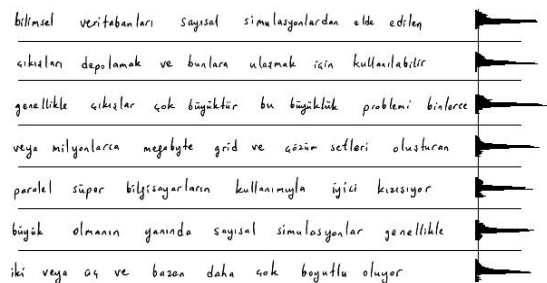 bilimsel veritabanları sayısal simulasyonlardan elde edilen
çıkışları depolamak ve bunlara ulaşmak için kullanılabilir
genellikle çıkışlar çok büyüktür bu büyüklük problemi binlerce
veya milyonlarca megabyte grid ve çözüm setleri oluşturan
paralel süper bilgisayarların kullanımıyla iyici kızışıyor
büyük olmanın yanında sayısal simulasyonlar genellikle
iki veya üç ve bazan daha çok boyutlu oluyor